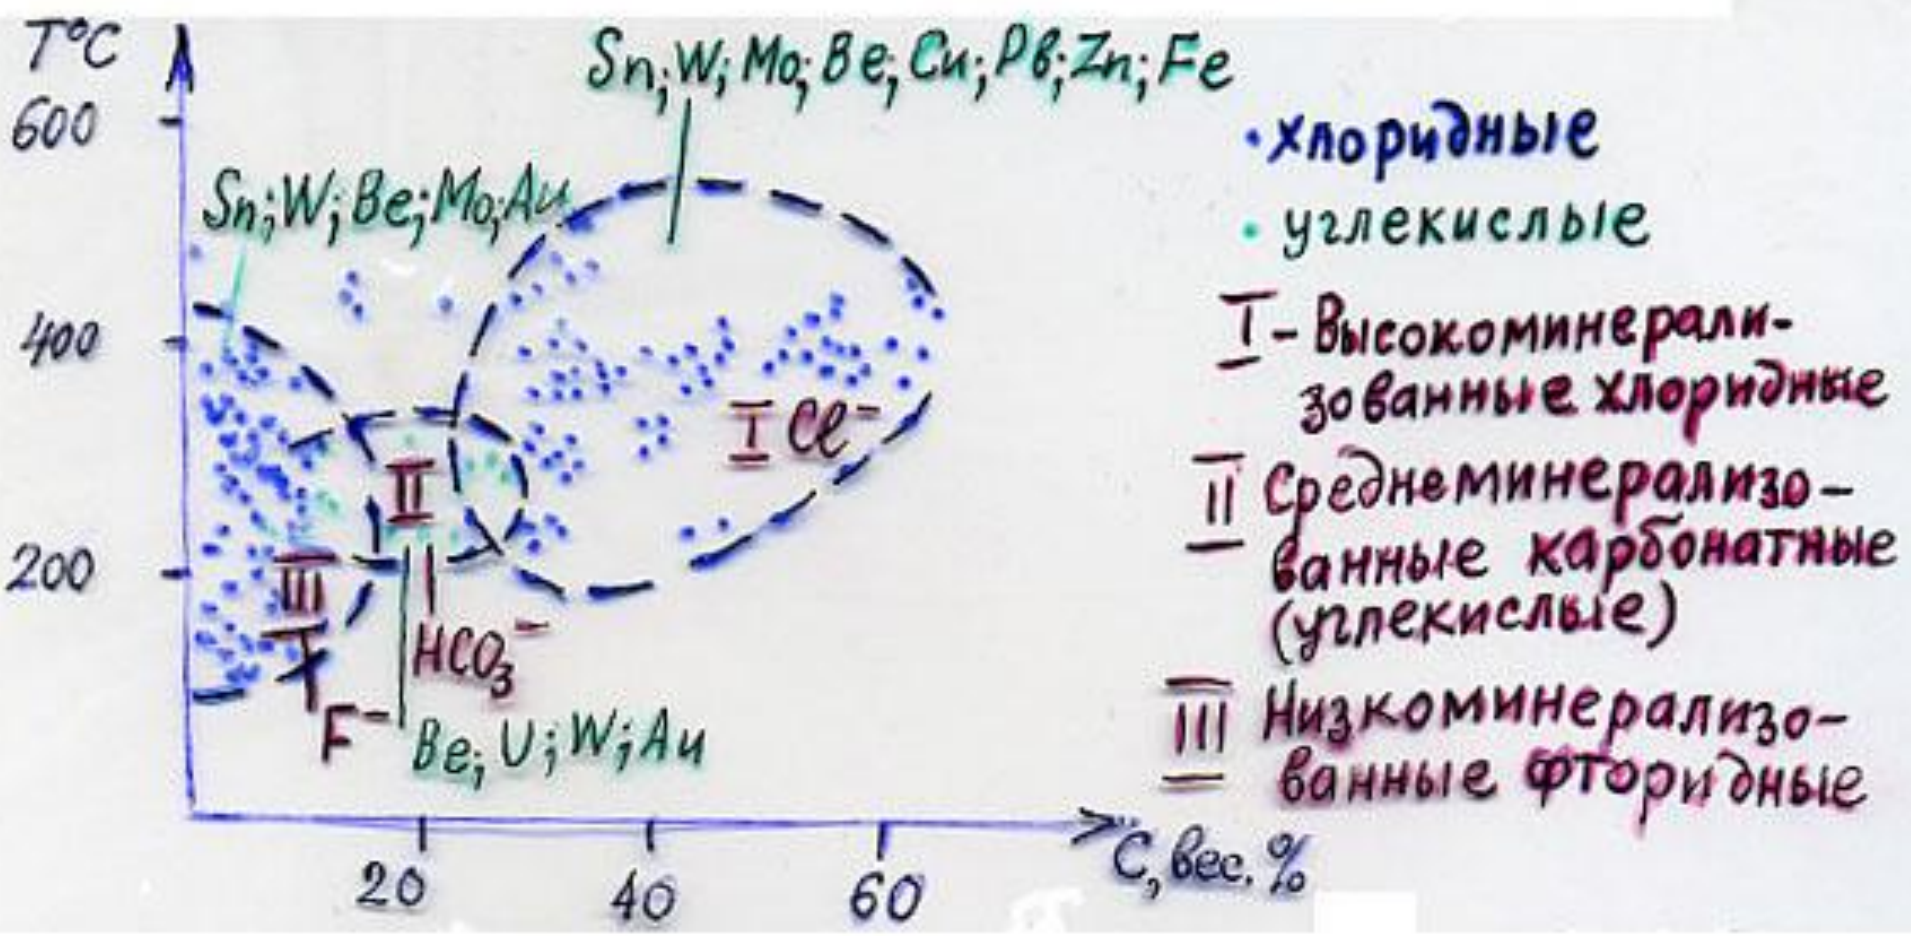 T°C
600
400
200
Sn; W; Mo; Be; Cu; Рв; Zn; Fe
Sn; W; Be; Mo; Au
I Cl⁻
II
III
HCO₃⁻
F⁻
Be; U; W; Au
20
40
60
C, вес. %
хлоридные
углекислые
I - Высокоминерали-
зованные хлоридные
II Среднеминерализо-
ванные карбонатные
(углекислые)
III Низкоминерализо-
ванные фторидные